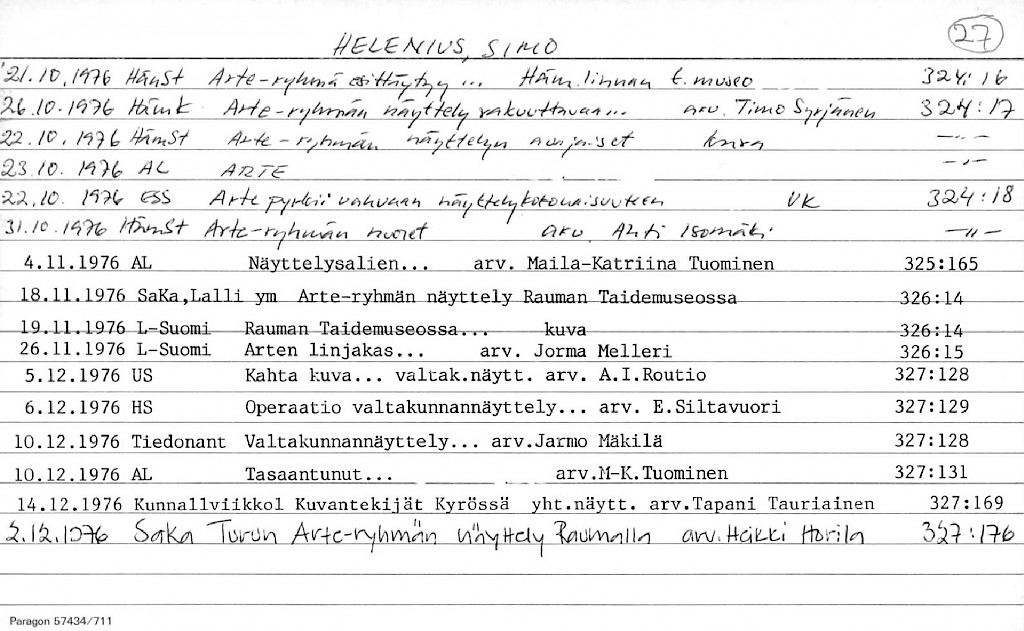 27
HELENIUS, SIMO
21.10.1976 HämSt Arte-ryhmä esittäytyy... Häm.linnan t.museo 324:16
26.10.1976 HämK Arte-ryhmän näyttely vakuuttavaa... arv. Timo Syrjänen 324:17
22.10.1976 HämSt Arte-ryhmän näyttelyn avajaiset kuva —"—
23.10.1976 AL ARTE —"—
22.10.1976 ESS Arte pyrkii vahvaan näyttelykokonaisuuteen VK 324:18
31.10.1976 HämSt Arte-ryhmän nuoret arv. Ahti Isomäki —"—
4.11.1976 AL Näyttelysalien... arv. Maila-Katriina Tuominen 325:165
18.11.1976 SaKa,Lalli ym Arte-ryhmän näyttely Rauman Taidemuseossa 326:14
19.11.1976 L-Suomi Rauman Taidemuseossa... kuva 326:14
26.11.1976 L-Suomi Arten linjakas... arv. Jorma Melleri 326:15
5.12.1976 US Kahta kuva... valtak.näytt. arv. A.I.Routio 327:128
6.12.1976 HS Operaatio valtakunnannäyttely... arv. E.Siltavuori 327:129
10.12.1976 Tiedonant Valtakunnannäyttely... arv.Jarmo Mäkilä 327:128
10.12.1976 AL Tasaantunut... arv.M-K.Tuominen 327:131
14.12.1976 Kunnallviikkol Kuvantekijät Kyrössä yht.näytt. arv.Tapani Tauriainen 327:169
2.12.1976 SaKa Turun Arte-ryhmän näyttely Raumalla arv. Heikki Horila 327:176
Paragon 57434/711